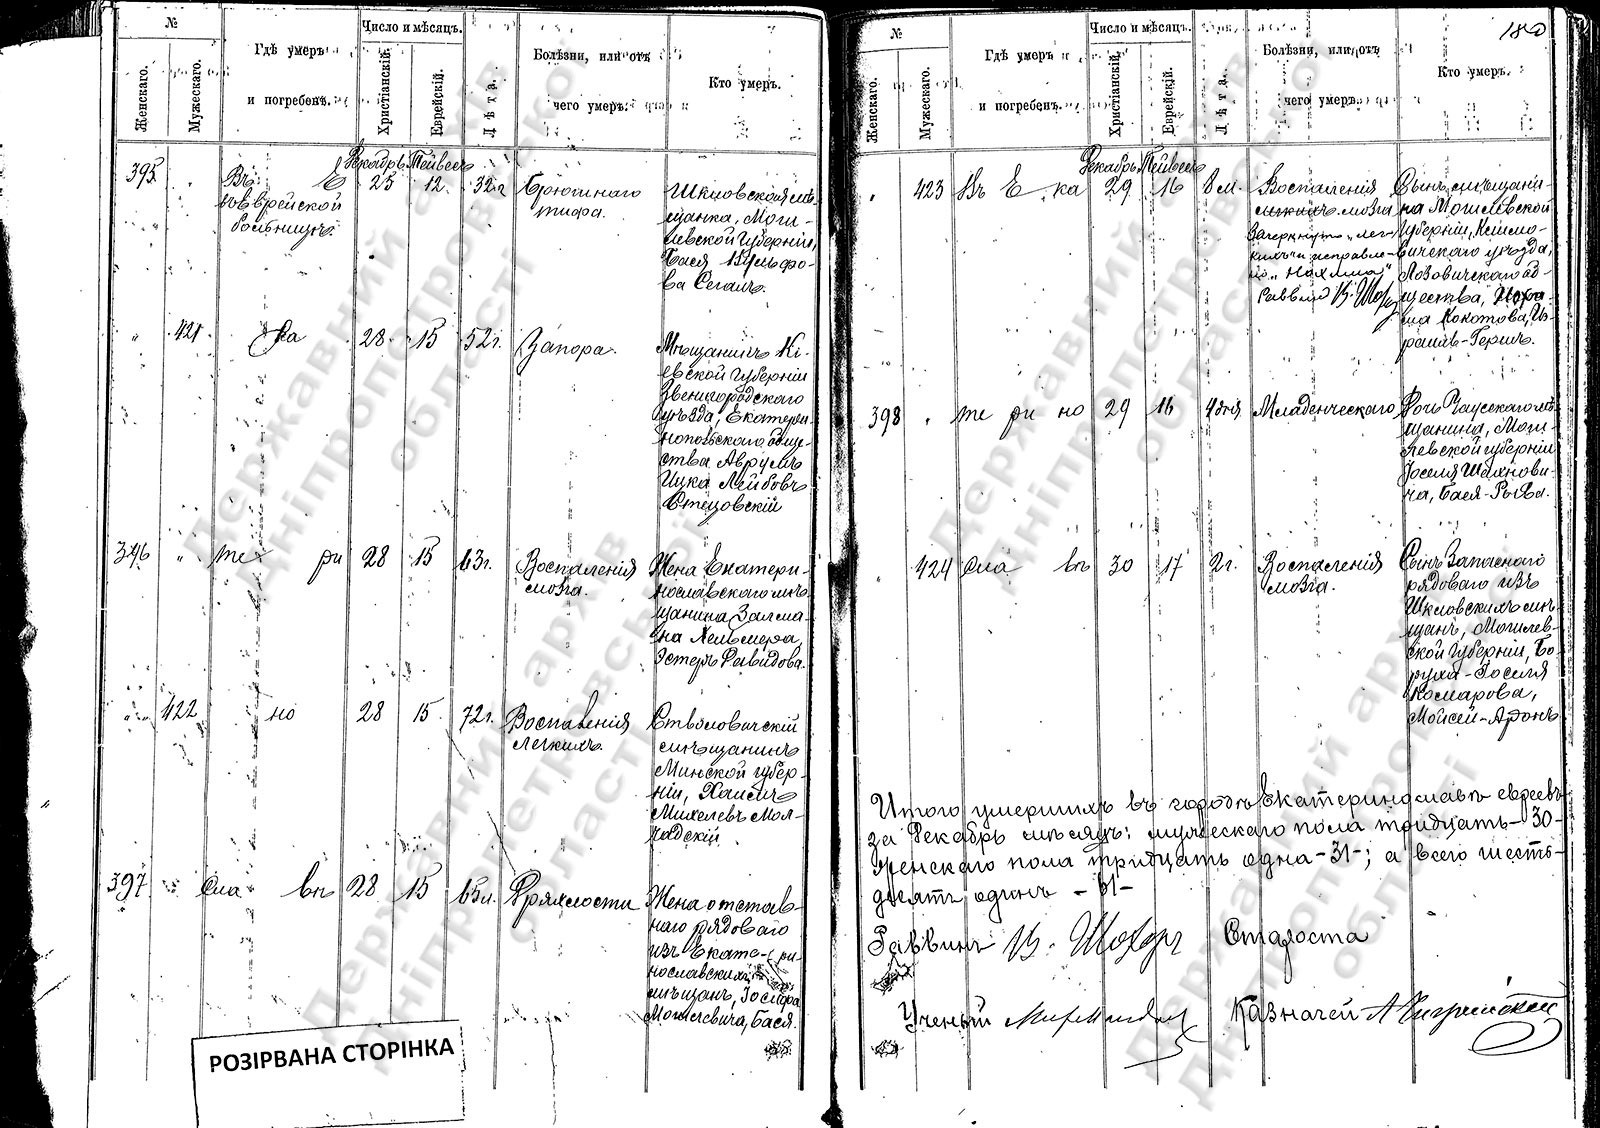 №
Женскаго.
Мужескаго.
Гдѣ умеръ
и погребенъ.
Число и мѣсяцъ.
Христіанскій.
Еврейскій.
Лѣта.
Болѣзни, или отъ
чего умеръ.
Кто умеръ.
395
Въ Е
въ Еврейской
больницѣ.
Декабрь Тейвесъ
25 12. 32 г
Брюшнаго
тифа.
Шкловская мѣ-
щанка, Моги-
левской Губерніи,
Бася Вульфо-
ва Сегалъ.
421 ка 28 15 52 г.
Запора.
Мѣщанинъ Кі-
евской Губерніи
Звенигородскаго
уѣзда, Екатери-
нопольскаго обще-
ства Аврумъ
Ицка Лейбовъ
Стецовскій
396 те ри 28 15 63 г.
Воспаленія
мозга.
Жена Екатери-
нославскаго мѣ-
щанина Залма-
на Хельмера,
Эстеръ Давидова.
422 но 28 15 72 г.
Воспаленія
легкихъ.
Стволовичскій
мѣщанинъ
Минской губер-
ніи, Хаимъ
Михелевъ Мол-
чадскій
397 сла въ 28 15 65 л.
Дряхлости
Жена отстав-
наго рядоваго
изъ Екатери-
нославскихъ
мѣщанъ, Іосифа
Мошкевича, Бася.
РОЗІРВАНА СТОРІНКА
180
№
Женскаго.
Мужескаго.
Гдѣ умеръ
и погребенъ.
Число и мѣсяцъ.
Христіанскій.
Еврейскій.
Лѣта.
Болѣзни, или отъ
чего умеръ.
Кто умеръ.
Декабрь Тейвесъ
423 Въ Е ка 29 16 8 м.
Воспаленія
легкихъ мозга
Зачеркнуто „лег-
кихъ“ и исправле-
но „Нохима“
Раввинъ В. Шохоръ
Сынъ мѣщани-
на Могилевской
Губерніи, Климо-
вичскаго уѣзда,
Лозовичскаго об-
щества, Нохи-
ма Кокотова, Из-
раиль-Гершъ.
398 те ри но 29 16 4 дня
Младенческаго
Дочь Чаусскаго мѣ-
щанина, Моги-
левской губерніи
Іоселя Шахнови-
ча, Бася-Рыва.
424 сла въ 30 17 2 г.
Воспаленія
мозга.
Сынъ Запаснаго
рядоваго изъ
Шкловскихъ мѣ-
щанъ, Могилев-
ской Губерніи, Бо-
руха-Іоселя
Комарова,
Мойсей-Аронъ
Итого умершихъ въ городѣ Екатеринославѣ евреевъ
за Декабрь мѣсяцъ: мужескаго пола тридцать-30-
женскаго пола тридцать одна-31-; а всего шесть-
десятъ одинъ -61-
Раввинъ В. Шохоръ Староста
Ученый Казначей
Державний архів
Дніпропетровської
області